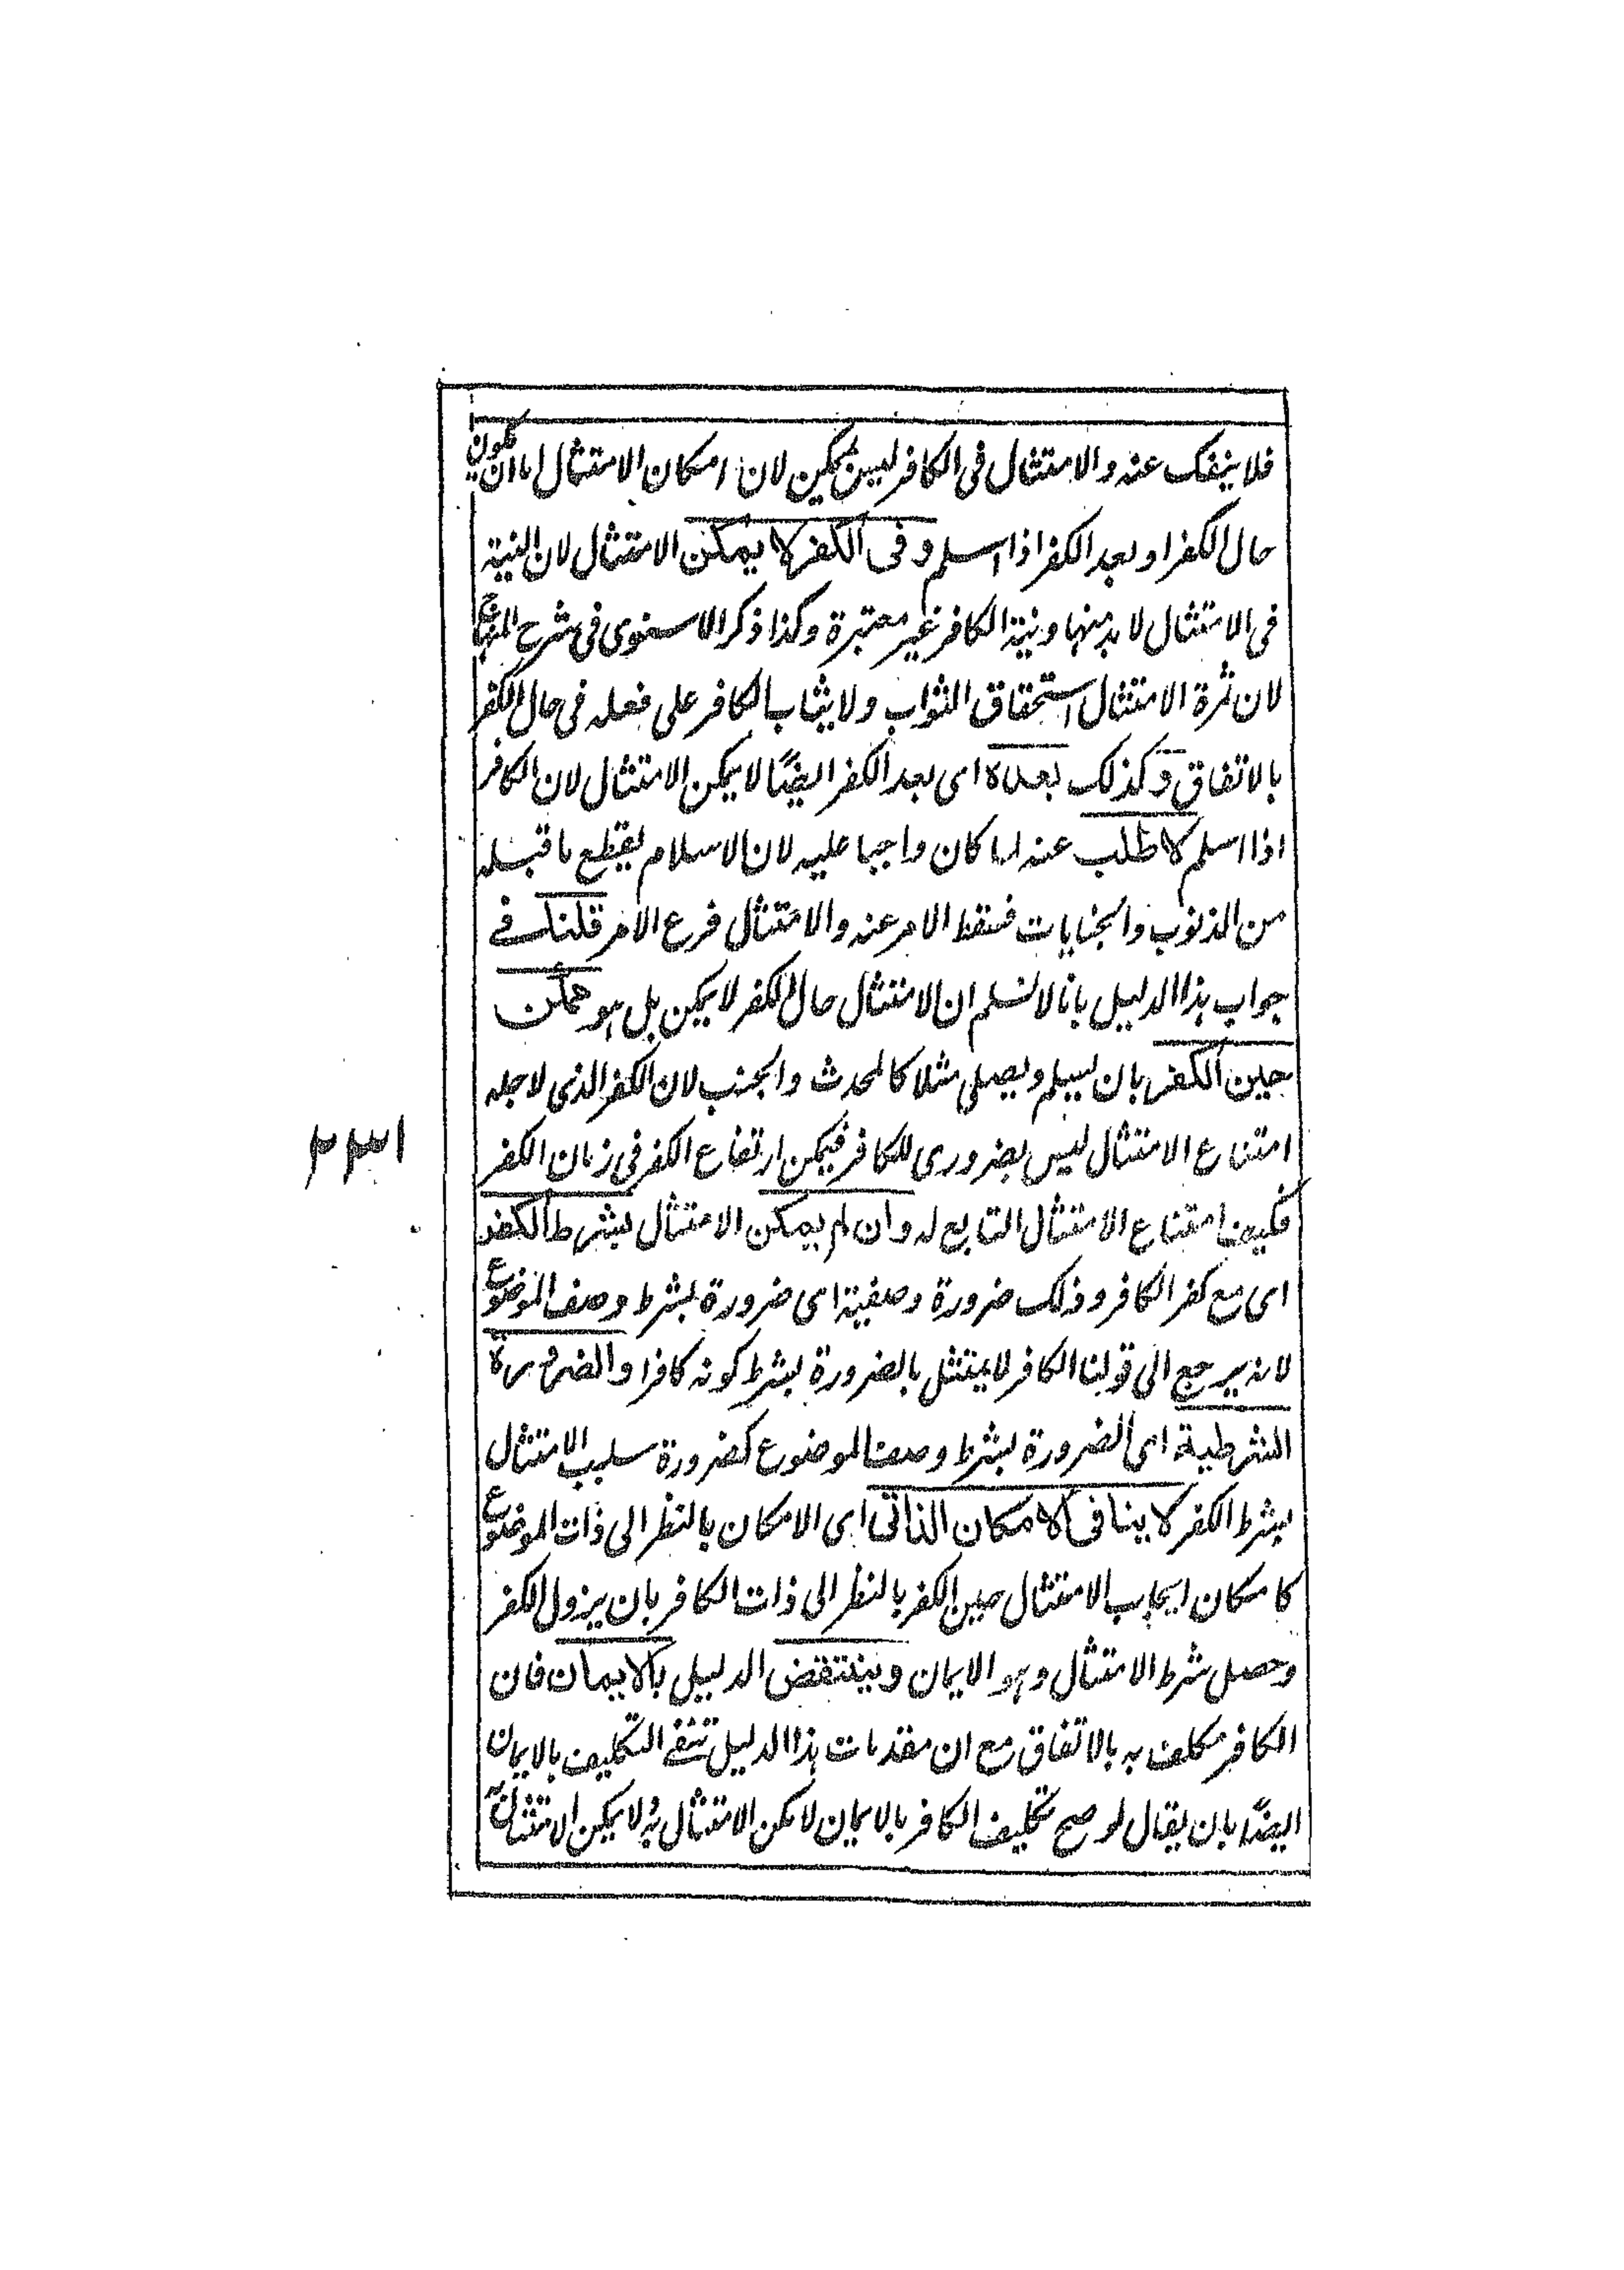 فلا ينفك عنه والامتثال فى الكافر ليس بممكن لان امكان الامتثال اما ان يكون
حال الكفر او بعد الكفر اذا اسلم و فى الكفر لا يمكن الامتثال لان النية
فى الامتثال لا بد منها ونية الكافر غير معتبرة وكذا ذكر الاسنوى فى شرح المنهاج
لان ثمرة الامتثال استحقاق الثواب ولا يثاب الكافر على فعله فى حال الكفر
بالاتفاق وكذلك بعده اى بعد الكفر ايضًا لا يمكن الامتثال لان الكافر
اذا اسلم لا طلب عنه لما كان واجبا عليه لان الاسلام يقطع ما قبله
من الذنوب والجنايات فسقط الامر عنه والامتثال فرع الامر قلنا فے
جواب هذا الدليل بانا لا نسلم ان الامتثال حال الكفر لا يمكن بل هو ممكن
حين الكفر بان يسلم ويصلى مثلا كالمحدث والجنب لان الكفر الذى لاجله
امتناع الامتثال ليس بضرورى للكافر فيمكن ارتفاع الكفر فى زمان الكفر
فكيف امتناع الامتثال التابع له وان لم يمكن الامتثال بشرط الكفر
اى مع كفر الكافر وذلك ضرورة وصفية اى ضرورة بشرط وصف الموضوع
لانه يرجع الى قولنا الكافر لا يمتثل بالضرورة بشرط كونه كافرا والضرورة
الشرطية اى الضرورة بشرط وصف الموضوع كضرورة سلب الامتثال
بشرط الكفر لا ينافى الامكان الذاتى اى الامكان بالنظر الى ذات الموضوع
كامكان ايجاب الامتثال حين الكفر بالنظر الى ذات الكافر بان يزول الكفر
وحصل شرط الامتثال وهو الايمان وينتقض الدليل بالايمان فان
الكافر مكلف به بالاتفاق مع ان مقدمات هذا الدليل تنفے التكليف بالايمان
ايضًا بان يقال لو صح تكليف الكافر بالايمان لامكن الامتثال به ولا يمكن الامتثال به
٢٣١